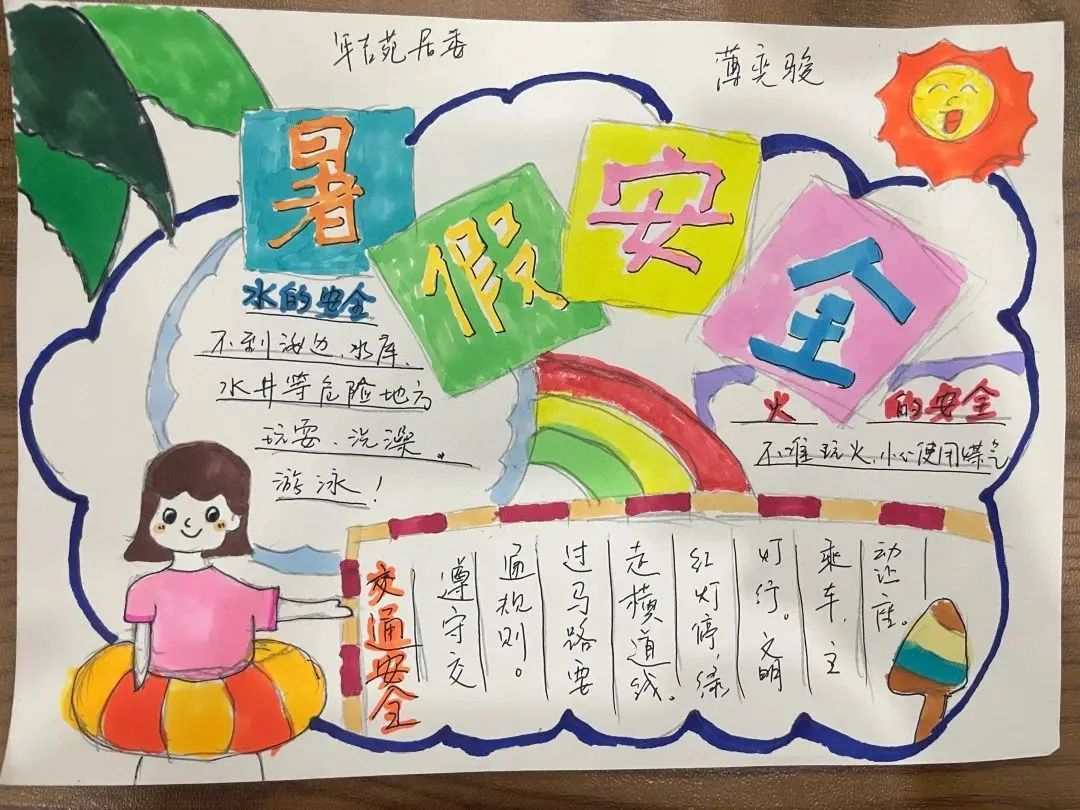 年吉苑居委
薄奕骏
暑假安全
水的安全
不到海边、水库、
水井等危险地方
玩耍、洗澡、
游泳！
火的安全
不准玩火，小心使用煤气
交通安全
遵守交
通规则。
过马路要
走横道线。
红灯停，绿
灯行。文明
乘车，主
动让座。